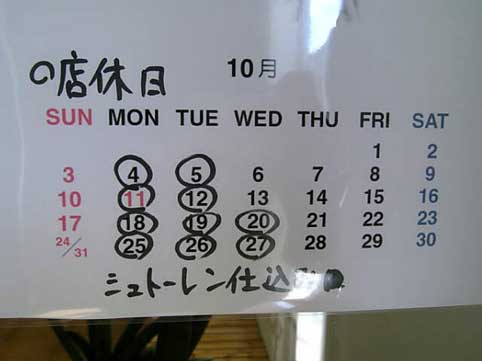 の店休日 10月
SUN MON TUE WED THU FRI SAT
1 2
3 4 5 6 7 8 9
10 11 12 13 14 15 16
17 18 19 20 21 22 23
24/31 25 26 27 28 29 30
シュトーレン仕込